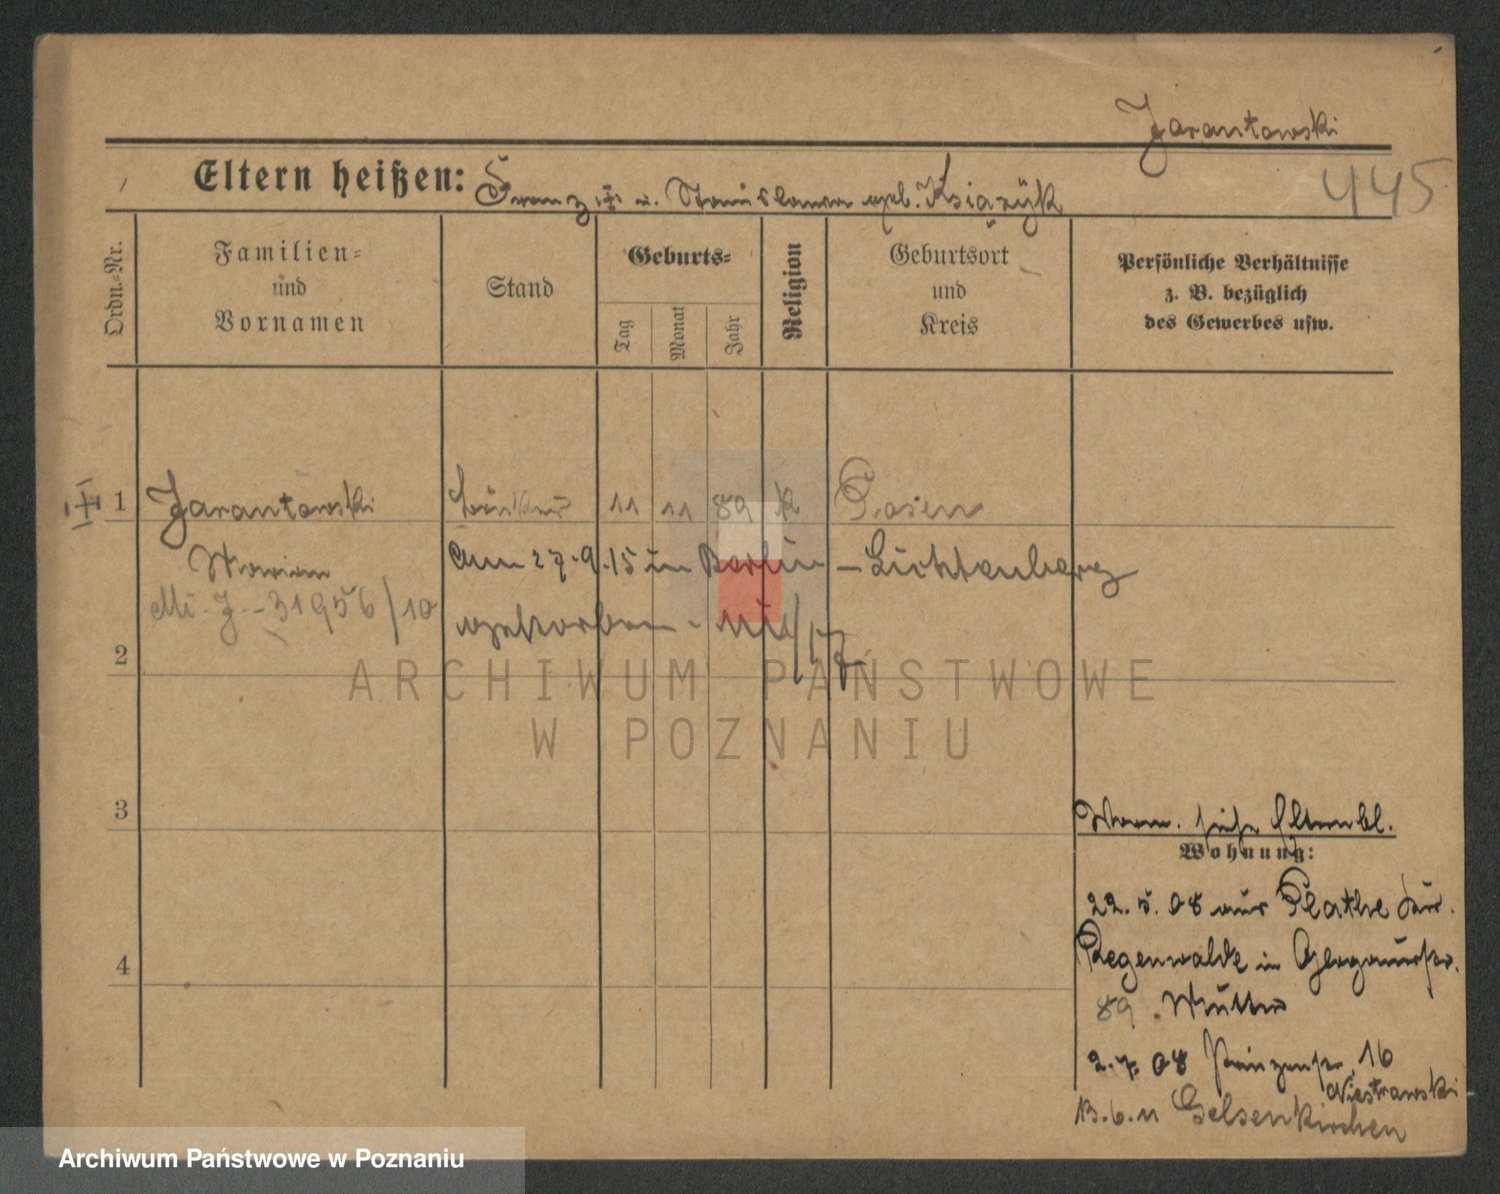 Jarantowski
Eltern heißen: Franz u. Stanislawa geb. Książyk
445
Ordn.-Nr.
Familien-
und
Vornamen
Stand
Geburts-
Tag
Monat
Jahr
Religion
Geburtsort
und
Kreis
Persönliche Verhältnisse
z. B. bezüglich
des Gewerbes usw.
1 Jarantowski 11 11 89 k Posen
Marian am 27.9.15 in Berlin - Lichtenberg
31956/10 gestorben.
2
ARCHIWUM PAŃSTWOWE
W POZNANIU
3
Verm. siehe Elternbl.
Wohnung:
22.5.08 aus Plathe
4
Regenwalde in Glogauerstr.
89. Mutter
2.7.08 Prinzenstr. 16
Niestrawski
13.6.11 Gelsenkirchen
Archiwum Państwowe w Poznaniu